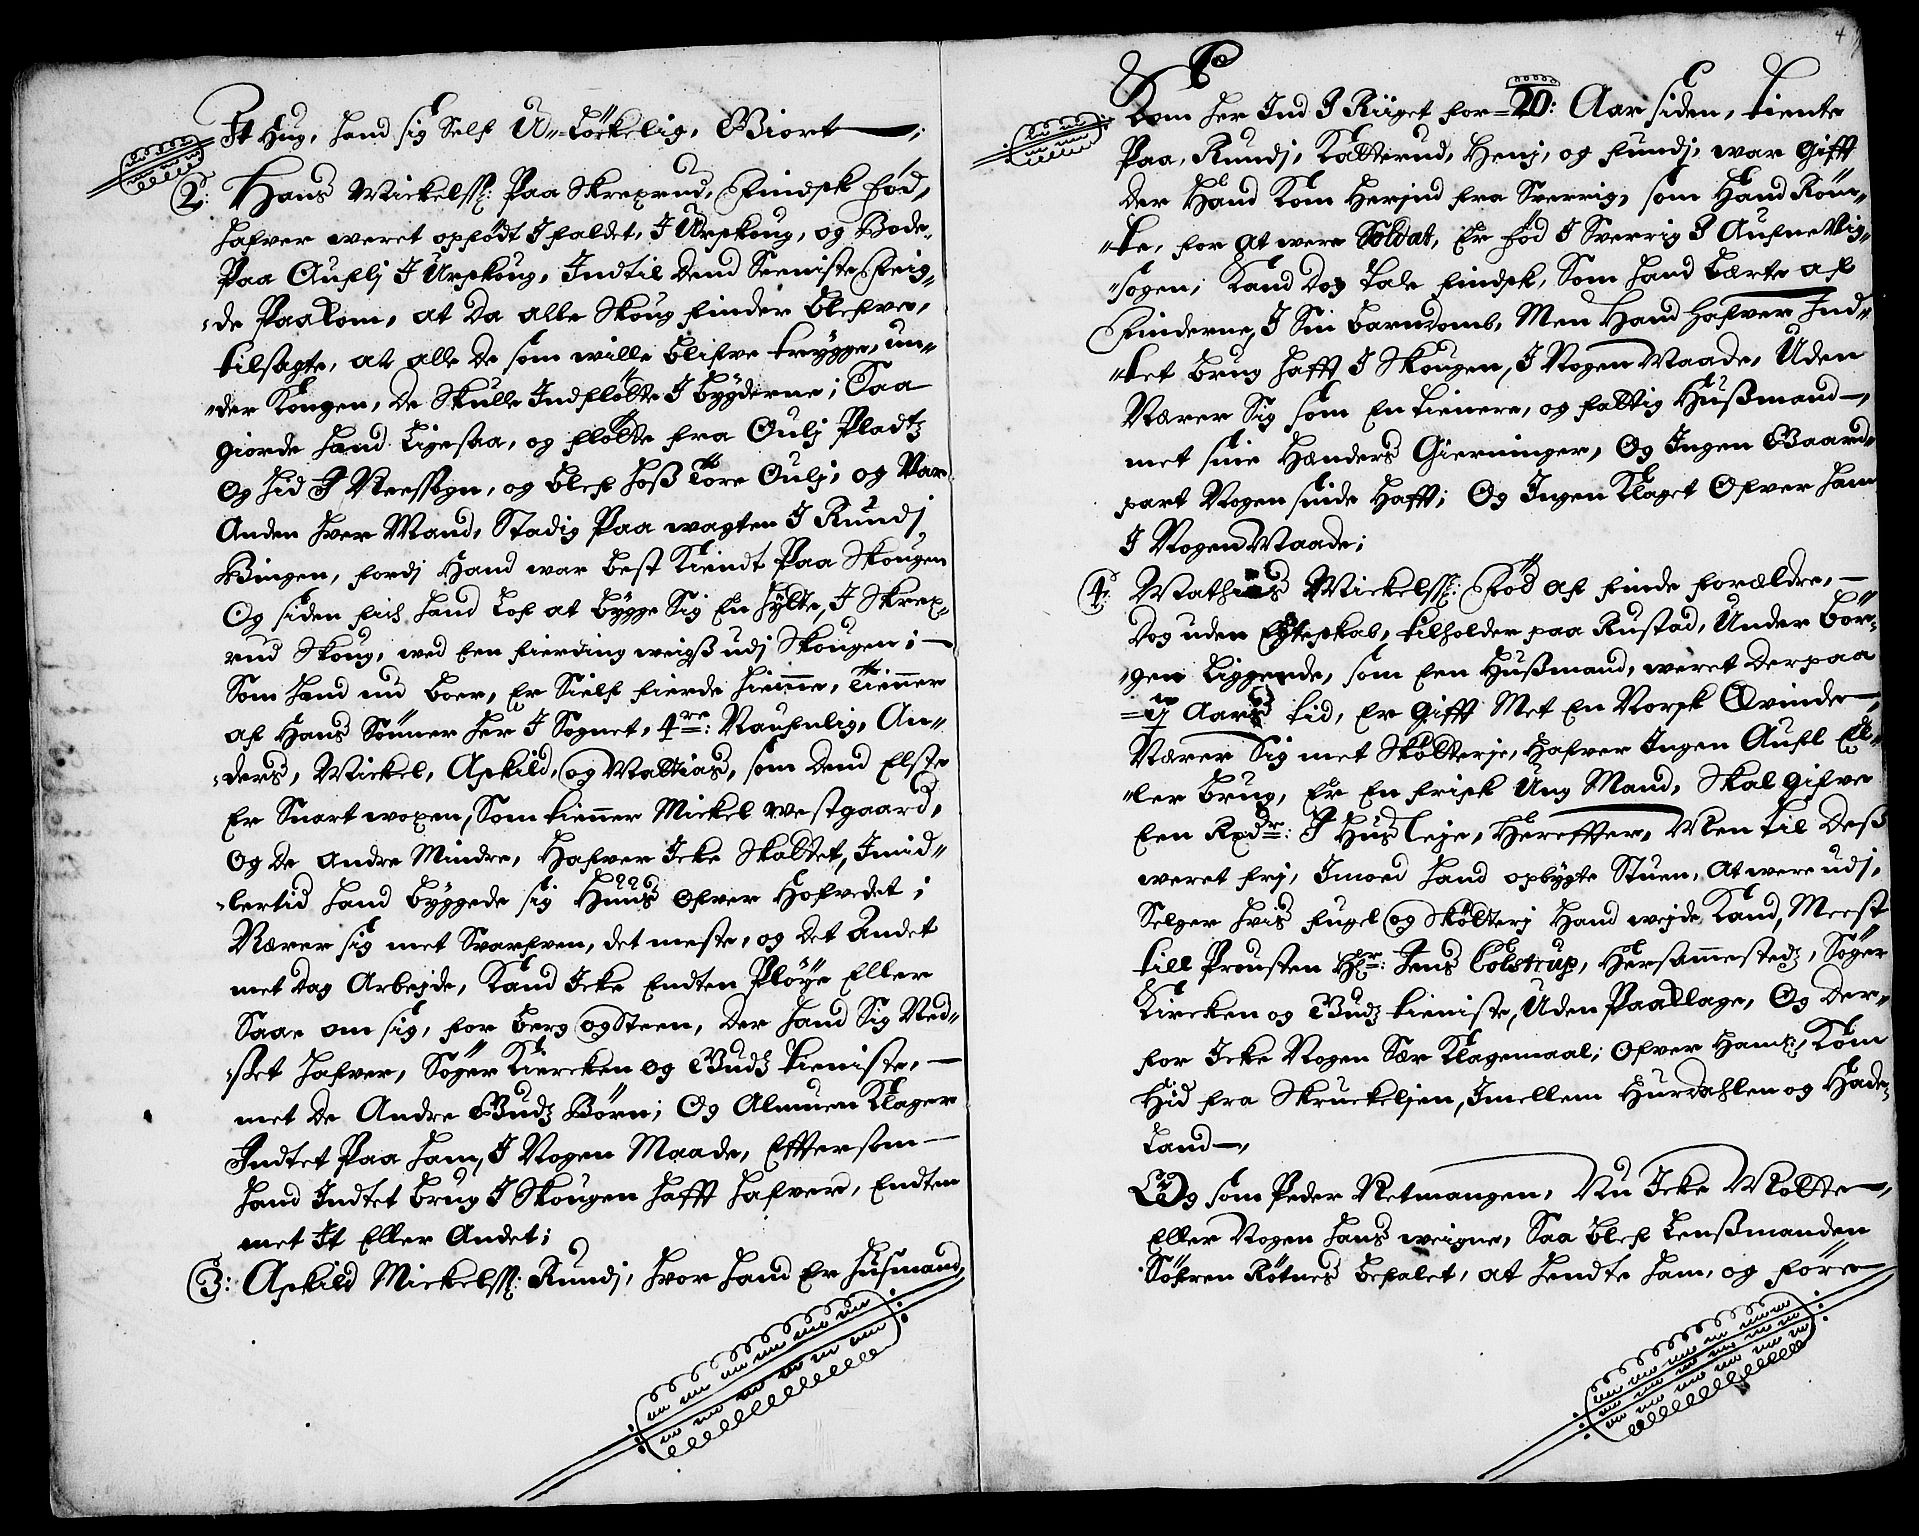 It Hug, hand sig Self U-lökkelig, Giort
2: Hans Mickelss: Paa Skrexrud, Findsk Fød,
hafver weret opfödt I faldet, I Urskoug, og Bode
Paa Auflj I Urskoug, Indtil dend Seeniste Feig-
de Paakom, at da alle Skoug finder blefve,
tilsagte, at alle de som wille blifve trygge, un-
der Kongen, de Skulle Indflötte I bygderne; Saa
giorde hand Ligesaa, og flötte fra Oulj Pladtz
og hid I Neessogn, og blef hoß Tore Oulj, og Var
Anden hver Mand, Stadig Paa wagten I Rundj
Bingen, fordj Hand war best Kiendt Paa Skougen
Og siden fich hand Lof at bygge Sig En hytte, I Skrex-
rud Skoug, wed Een fierding weigß udj Skougen;
Som hand nu boer, Er Sielf fierde hiemme, Tienner
af Hans Sönner her I Sognet, 4re: Naufnlig, An-
ders, Mickel, Askild, og Mattias, som dend Elste
Er Snart woxen, Som tienner Mickel Westgaard,
Og de Andre Mindre, Hafver Icke Skattet, Imid-
lertid hand byggede sig Huus ofver Hofvedet;
Nærer sig met Svarfven, det meste, og det Andet
met dag Arbejde, Kand Icke Endten Pløye Eller
Saae om sig, for berg og Steen, der hand Sig Ned-
set hafver, Søger Kircken og Gudz tieniste,
met de Andre Gudz Børn; Og Almuen Klager
Indtet Paa ham, I Nogen Maade, Efftersom
hand Indtet brug I Skougen hafft hafver, Endten
met It Eller Andet;
3: Askild Mickelss: Rundj, hvor hand Er Husmand,
4
Kom her Ind I Riiget for 20: Aar siden, tiente
Paa, Rundj, Katterud, Henj, og fundj, war Gifft
der Hand Kom Herind fra Sverrig, som Hand Röm-
te, for at were Soldat, Er fød I Sverrig I Aufne Vig-
sogen; Kand dog tale findsk, Som hand Lærte af
Finderne, I Sin barndomb, Men Hand hafver Ind-
tet brug hafft I Skougen, I Nogen Maade, Uden
Nærer Sig som En tienere, og fattig Hußmand,
met sine Hænders Gierninger, Og Ingen Gaard
part Nogen sinde hafft; Og Ingen Klaget Ofver ham
I Nogen Maade;
4: Mathias Mickelss: Fød af finde forældre,
dog uden Egteskab, tilholder paa Rustad, Under bör-
gen Liggende, som Een Hußmand, weret derpaa
Aars tid, Er Gifft Met En Norsk Qvinde,
Nærer Sig met Skötterje, hafver Ingen Aufl El-
ler brug, Er En frisk Ung Mand, Skal Gifve
Een Rxdr: I Husleje, Hereffter, Men til deß
weret frj, Imoed hand opbygte Stuen, At were udj,
Selger hvis fugel og Skötterj Hand wejde Kand, Meest
till Prousten Hr: Jens Colstrup, Hersammestedz, Søger
Kircken og Gudz tieniste, Uden Paaklage, Og der-
for Icke Nogen Sær Klagemaal; ofver Ham, Kom
Hid fra Skruckeljen, Imellem Hurdahlen og Hade-
Land,
Og som Peder Retmangen, Nu Icke Mötte,
Eller Nogen hans weigne, Saa blef Lenßmanden
Söfren Røtnes befalet, at hendte ham, og före